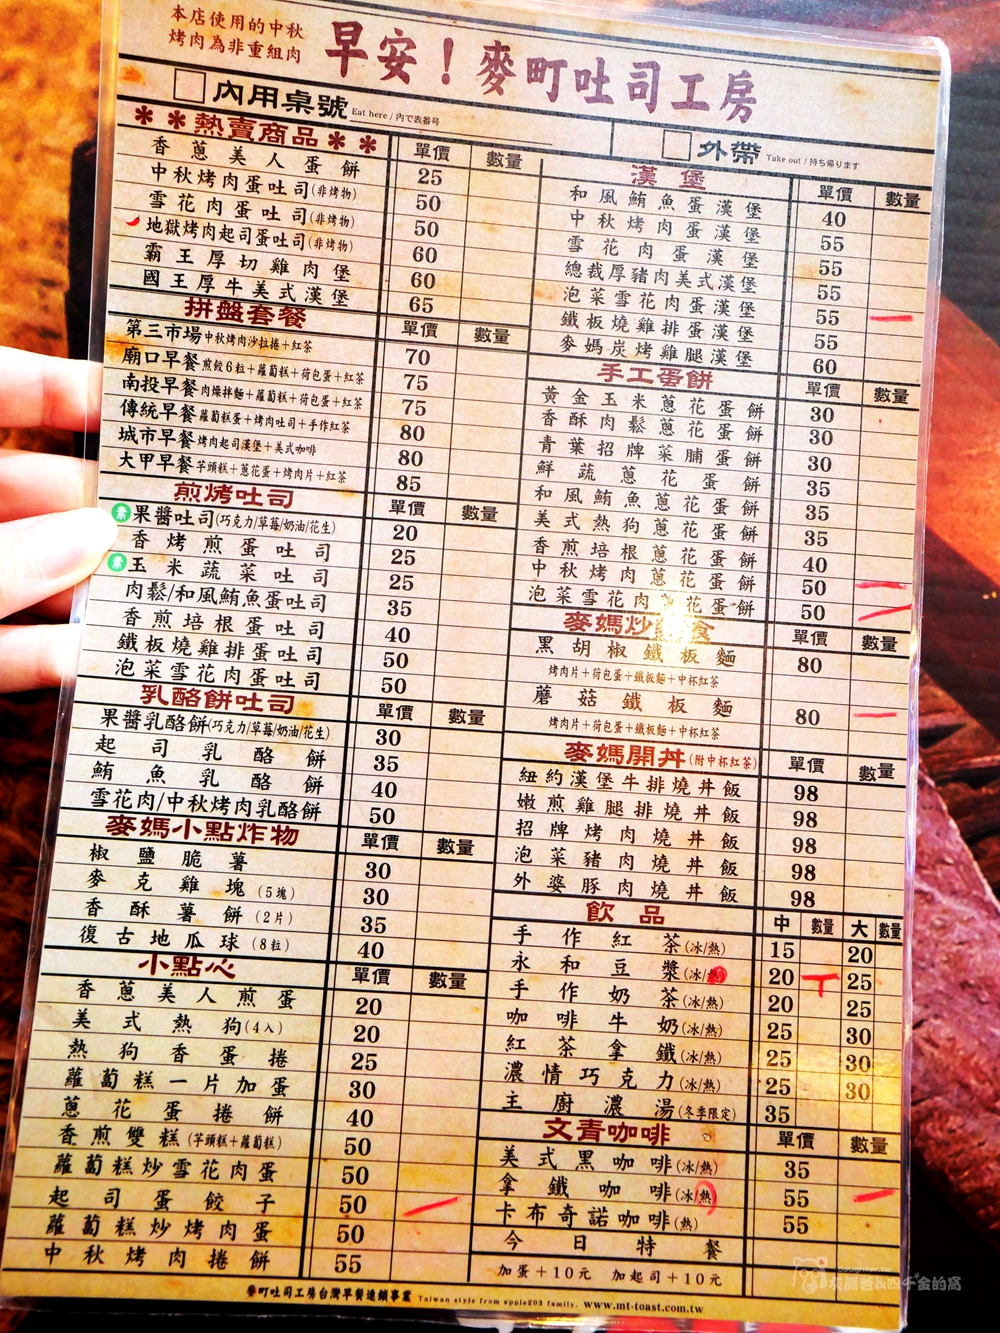 本店使用的中秋
烤肉為非重組肉
早安！麥町吐司工房
內用桌號 Eat here / 內で表番号
外帶 Take out / 持ち帰ります
＊＊熱賣商品＊＊ 單價 數量
香蔥美人蛋餅 25
中秋烤肉蛋吐司(非烤物) 50
雪花肉蛋吐司(非烤物) 50
地獄烤肉起司蛋吐司(非烤物) 60
霸王厚切雞肉堡 60
國王厚牛美式漢堡 65
拼盤套餐 單價 數量
第三市場 中秋烤肉沙拉捲+紅茶 70
廟口早餐 煎餃6粒+蘿蔔糕+荷包蛋+紅茶 75
南投早餐 肉燥拌麵+蘿蔔糕+荷包蛋+紅茶 75
傳統早餐 蘿蔔糕蛋+烤肉吐司+手作紅茶 80
城市早餐 烤肉起司漢堡+美式咖啡 80
大甲早餐 芋頭糕+蔥花蛋+烤肉片+紅茶 85
煎烤吐司 單價 數量
素 果醬吐司(巧克力/草莓/奶油/花生) 20
香烤煎蛋吐司 25
素 玉米蔬菜吐司 25
肉鬆/和風鮪魚蛋吐司 35
香煎培根蛋吐司 40
鐵板燒雞排蛋吐司 50
泡菜雪花肉蛋吐司 50
乳酪餅吐司 單價 數量
果醬乳酪餅(巧克力/草莓/奶油/花生) 30
起司乳酪餅 35
鮪魚乳酪餅 40
雪花肉/中秋烤肉乳酪餅 50
麥媽小點炸物 單價 數量
椒鹽脆薯 30
麥克雞塊(5塊) 30
香酥薯餅(2片) 35
復古地瓜球(8粒) 40
小點心 單價 數量
香蔥美人煎蛋 20
美式熱狗(4入) 20
熱狗香蛋捲 25
蘿蔔糕一片加蛋 30
蔥花蛋捲餅 40
香煎雙糕(芋頭糕+蘿蔔糕) 50
蘿蔔糕炒雪花肉蛋 50
起司蛋餃子 50
蘿蔔糕炒烤肉蛋 50
中秋烤肉捲餅 55
漢堡 單價 數量
和風鮪魚蛋漢堡 40
中秋烤肉蛋漢堡 55
雪花肉蛋漢堡 55
總裁厚豬肉美式漢堡 55
泡菜雪花肉蛋漢堡 55
鐵板燒雞排蛋漢堡 55
麥媽炭烤雞腿漢堡 60
手工蛋餅 單價 數量
黃金玉米蔥花蛋餅 30
香酥肉鬆蔥花蛋餅 30
青葉招牌菜脯蛋餅 30
鮮蔬蔥花蛋餅 35
和風鮪魚蔥花蛋餅 35
美式熱狗蔥花蛋餅 35
香煎培根蔥花蛋餅 40
中秋烤肉蔥花蛋餅 50
泡菜雪花肉蔥花蛋餅 50
麥媽炒 食 單價 數量
黑胡椒鐵板麵 80
烤肉片+荷包蛋+鐵板麵+中杯紅茶
蘑菇鐵板麵 80
烤肉片+荷包蛋+鐵板麵+中杯紅茶
麥媽開丼(附中杯紅茶) 單價 數量
紐約漢堡牛排燒丼飯 98
嫩煎雞腿排燒丼飯 98
招牌烤肉燒丼飯 98
泡菜豬肉燒丼飯 98
外婆豚肉燒丼飯 98
飲品 中 數量 大 數量
手作紅茶(冰/熱) 15 20
永和豆漿(冰/熱) 20 25
手作奶茶(冰/熱) 20 25
咖啡牛奶(冰/熱) 25 30
紅茶拿鐵(冰/熱) 25 30
濃情巧克力(冰/熱) 25 30
主廚濃湯(冬季限定) 35
文青咖啡 單價 數量
美式黑咖啡(冰/熱) 35
拿鐵咖啡(冰/熱) 55
卡布奇諾咖啡(熱) 55
今日特餐
加蛋+10元 加起司+10元
麥町吐司工房台灣早餐連鎖事業 Taiwan style from apple203 family. www.mt-toast.com.tw